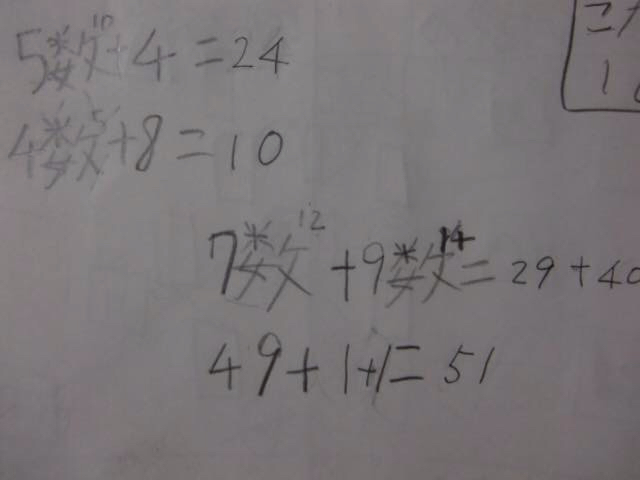 5数10+4=24
4数5+8=10
7数12+9数14=29+40
49+1+1=51